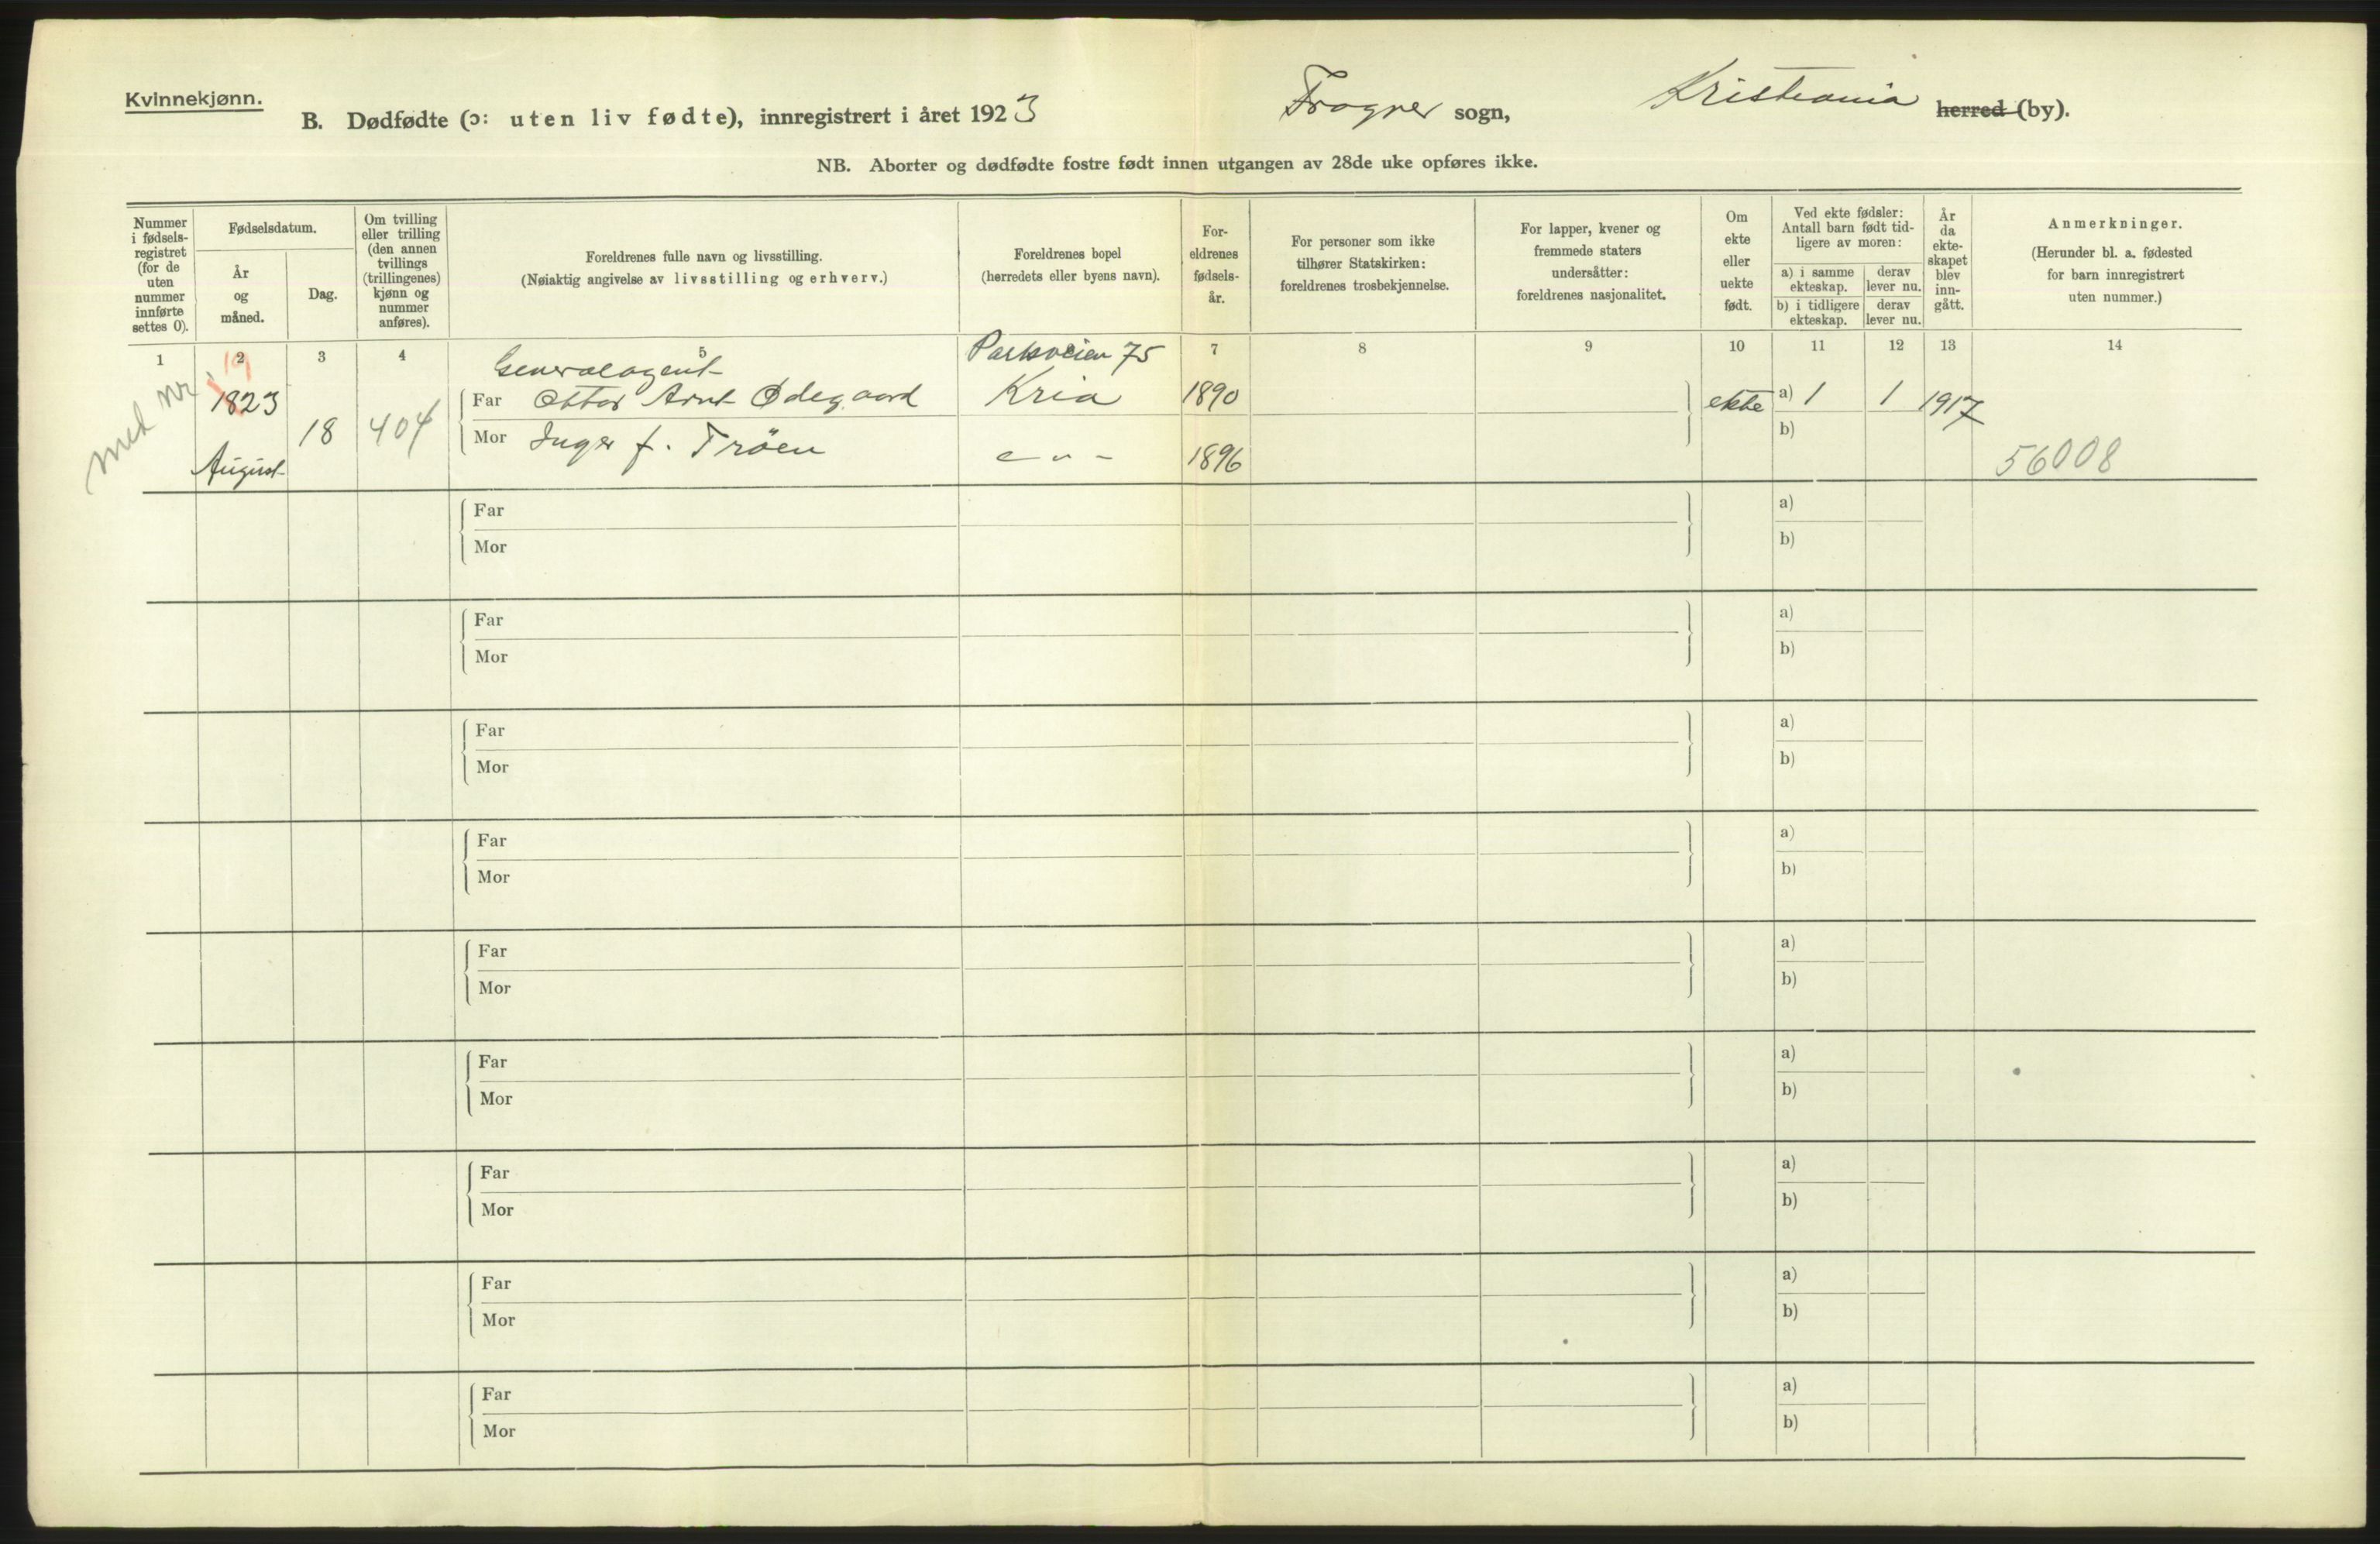 Kvinnekjønn.
B. Dødfødte (ɔ: uten liv fødte), innregistrert i året 1923 Frogner sogn, Kristiania herred (by).
NB. Aborter og dødfødte fostre født innen utgangen av 28de uke opføres ikke.
Nummer i fødsels-registret (for de uten nummer innførte settes 0).
Fødselsdatum.
År og måned.
Dag.
Om tvilling eller trilling (den annen tvillings (trillingenes) kjønn og nummer anføres).
Foreldrenes fulle navn og livsstilling.
(Nøiaktig angivelse av livsstilling og erhverv.)
Foreldrenes bopel
(herredets eller byens navn).
For-eldrenes fødsels-år.
For personer som ikke tilhører Statskirken: foreldrenes trosbekjennelse.
For lapper, kvener og fremmede staters undersåtter: foreldrenes nasjonalitet.
Om ekte eller uekte født.
Ved ekte fødsler: Antall barn født tid-ligere av moren:
a) i samme ekteskap.
derav lever nu.
b) i tidligere ekteskap.
derav lever nu.
År da ekte-skapet blev inn-gått.
Anmerkninger.
(Herunder bl. a. fødested for barn innregistrert uten nummer.)
1 2 3 4 5 7 8 9 10 11 12 13 14
med nr.
19
1823
August
18
404
Generalagent
Far Ottar Arnt Ødegaard
Mor Inger f. Tröen
Parkveien 75
Kria
— " —
1890
1896
ekte
a) 1 1 1917
b)
56008
Far a)
Mor b)
Far a)
Mor b)
Far a)
Mor b)
Far a)
Mor b)
Far a)
Mor b)
Far a)
Mor b)
Far a)
Mor b)
Far a)
Mor b)
Far a)
Mor b)